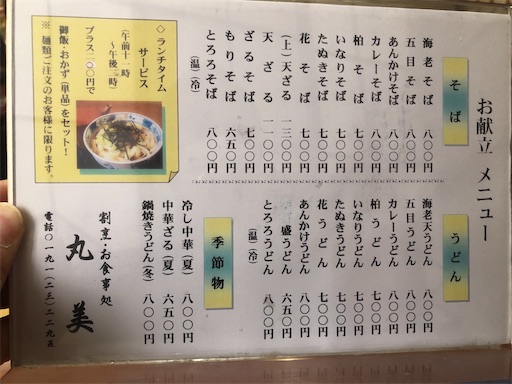 お献立 メニュー
そば
海老そば 八〇〇円
五目そば 八〇〇円
あんかけそば 八〇〇円
カレーそば 八〇〇円
柏そば 七〇〇円
いなりそば 七〇〇円
たぬきそば 七〇〇円
花そば 七〇〇円
(上)天ざる 一三〇〇円
天ざる 一一〇〇円
ざるそば 七〇〇円
もりそば 六五〇円
とろろそば 八〇〇円
(温)(冷)
◇ランチタイム
サービス
(午前十一時
～午後二時)
プラス二〇〇円で
御飯・おかず(単品)をセット!
※ 麺類ご注文のお客様に限ります。
うどん
海老天うどん 八〇〇円
五目うどん 八〇〇円
カレーうどん 八〇〇円
柏うどん 七〇〇円
いなりうどん 七〇〇円
たぬきうどん 七〇〇円
花うどん 七〇〇円
あんかけうどん 七〇〇円
盛うどん 六五〇円
とろろうどん 八〇〇円
(温)(冷)
季節物
冷し中華(夏) 八〇〇円
中華ざる(夏) 六五〇円
鍋焼きうどん(冬) 八〇〇円
割烹・お食事処
丸美
電話〇一九一(二三)二二九五